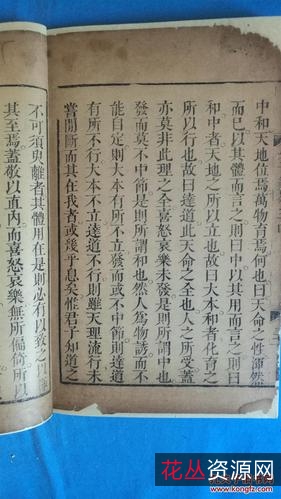 中和天地位焉萬物育焉何也曰天命之性渾然
而已以其體而言之則曰中以其用而言之則曰
和中者天地之所以立也故曰大本和者化育之
所以行也故曰達道此天命之全也人之所受蓋
亦莫非此理之全喜怒哀樂未發是則所謂中也
發而莫不中節是則所謂和也然人為物誘而不
能自定則大本有所不立發而或不中節則達道
有所不行大本不立達道不行則雖天理流行未
嘗間斷而其在我者或幾乎息矣惟君子知道之
不可須臾離者其體用在是則必有以致之以
其至焉蓋敬以直內而喜怒哀樂無所偏倚所以
花丛资源网